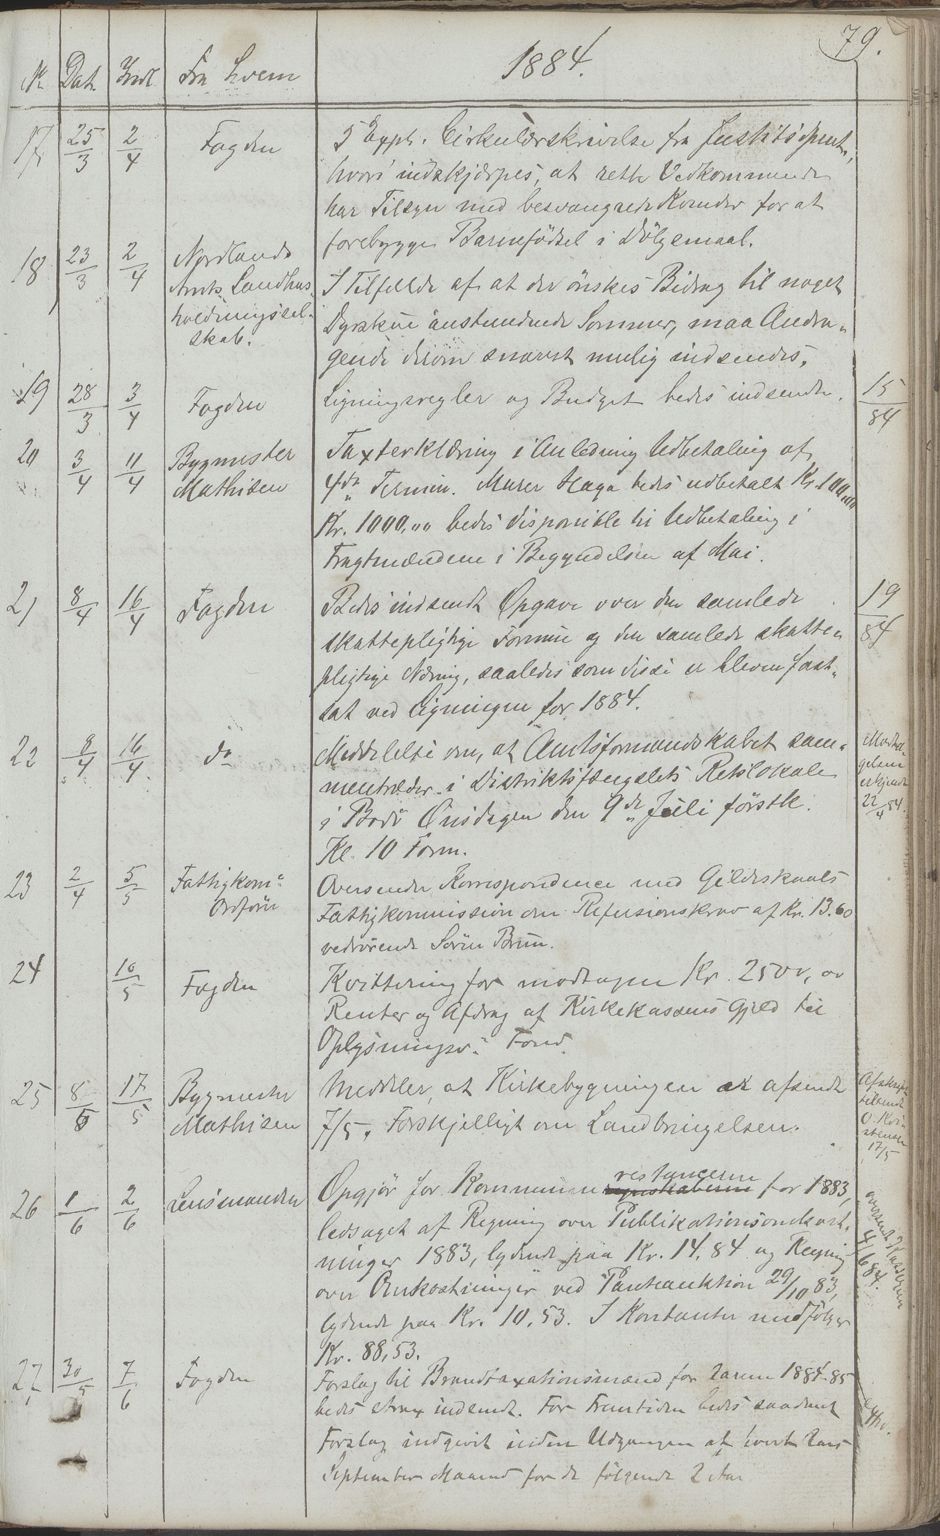 79.
N. Dat. Indl. Fra hvem 1884.
17, 25/3 2/4 Fogden 5 Expl. Cirkulærskrivelse fra Justitsdpmt.,
hvori indskjærpes, at rette Vedkommende
har Tilsyn med besvangrede Kvinder for at
forebygge Barnefødsel i Dølgsmaal.
18 23/3 2/4 Nordlands
Amts Landhus-
holdningssel-
skab.
I Tilfelde af at der ønskes Bidrag til noget
Dyrskue anstundende Sommer, maa Andra-
gende derom snarest mulig indsendes.
19 28/3 3/4 Fogden Ligningsregler og Budget bedes indsendte. 15/84
20 3/4 11/4 Bygmester
Mathisen
Taxterklæring i Anledning Udbetaling af
4de Termin. Murer Haga bedes udbetalt Kr. 100,00
Kr. 1000,00 bedes disponible til Udbetaling i
Fragtmændene i Begyndelsen af Mai.
21 8/4 16/4 Fogden Bedes indsendt Opgave over den samlede 19/84
skattepligtige Formue og den samlede skatte-
pligtige Næring, saaledes som disse er bleven fast-
sat ved Ligningen for 1884.
22 9/4 16/4 do Meddelelse om, at Amtsformandskabet sam-
mentræder i Distriktsfængslets Retslokale
i Bodø Onsdagen den 9de Juli førstk.
Kl. 10 Form.
Modta-
gelsen
erkjendt
22/4 84.
23 2/4 5/5 Fattigkoms
Ordfører
Oversender Korrespondence med Gildeskaals
Fattigkommission om Refusionskrav af Kr. 13.60
vedrørende Søren Brun.
24 10/5 Fogden Kvittering for modtagen Kr. 2500,00
Renter og Afdrag af Kirkekassens Gjeld til
Oplysningsv. Fond.
25 8/5 17/5 Bygmester
Mathisen
Meddeler, at Kirkebygningen er afsendt
7/5. Forskjelligt om Landbringelsen.
Afskrift
tilsendt
O. Kri-
stensen
17/5
26 1/6 2/6 Lensmanden Opgjør for Kommunerestancerne for 1883,
ledsaget af Regning over Publikationsomkost-
ninger 1883, lydende paa Kr. 14.84 og Regning
over Omkostninger ved Panteauktion 29/10 83,
lydende paa Kr. 10,53. I Kontanter medfølger
Kr. 88,53.
oversendt Kasseren
4/6 84.
27, 30/5 7/6 Fogden Forslag til Brandtaxationsmænd for Aarene 1884-85
bedes strax indsendt. For Fremtiden bedes saadant
Forslag indgivet inden Udgangen af hvert Aars
September Maaned for de følgende 2 Aar